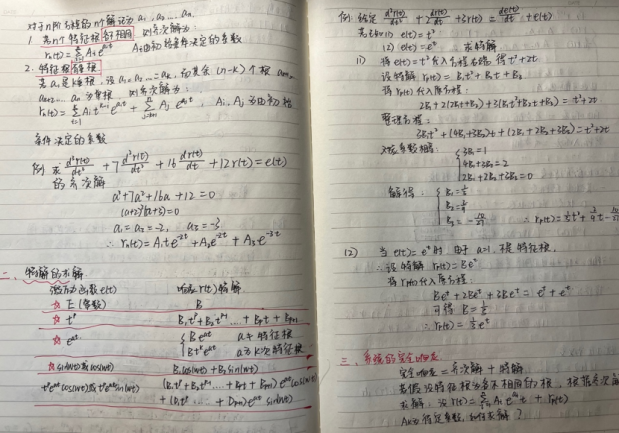 对于n阶方程的n个解记为 a₁, a₂ ... aₙ
1. 若n个特征根各不相同 则齐次解为:
rₕ(t) = Σ Aᵢ e^{aᵢt} Aᵢ由初始条件决定的系数
2. 特征根有重根
若 a₁ 是k重根, 设 a₁ = a₂ ... = aₖ, 而其余 (n-k) 个根
aₖ₊₂ ... aₙ 为单根 则齐次解为:
rₕ(t) = Σ Aᵢ t^{k-i} e^{a₁t} + Σ Aⱼ e^{aⱼt}, Aᵢ, Aⱼ 为由初始
条件决定的系数
例 求 d³r(t)/dt³ + 7 d²r(t)/dt² + 16 dr(t)/dt + 12r(t) = e(t)
的齐次解
a³+7a²+16a+12=0
(a+2)²(a+3)=0
a₁=a₂=-2, a₃=-3
∴ rₕ(t) = A₁te^{-2t} + A₂e^{-2t} + A₃e^{-3t}
二、特解的求解
激励函数e(t) 响应r(t)特解
☆ E (常数) B
☆ t^p B₁t^p + B₂t^{p-1} .... + Bₚt + Bₚ₊₁
☆ e^{at} { Be^{at} a不是特征根
Bt^k e^{at} a为k次特征根
☆ sin(wt)或cos(wt) B₁cos(wt) + B₂sin(wt)
t^p e^{at}cos(wt)或t^p e^{at}sin(wt) (B₁t^p + B₂t^{p-1} ... + Bₚt + Bₚ₊₁) e^{at}cos(wt)
+ (D₁t^p ... + Dₚ₊₁) e^{at} sin(wt)
例: 给定 d²r(t)/dt² + 2 dr(t)/dt + 3r(t) = de(t)/dt + e(t)
若 (1) e(t) = t²
(2) e(t) = e^t 求特解
(1) 将 e(t) = t² 代入方程右端 得 t²+2t
设特解 rₚ(t) = B₁t² + B₂t + B₃
将 rₚ(t) 代入原方程:
2B₁ + 2(2B₁t+B₂) + 3(B₁t²+B₂t+B₃) = t²+2t
整理方程:
3B₁t² + (4B₁+3B₂)t + (2B₁+2B₂+3B₃) = t²+2t
对应系数相等: { 3B₁ = 1
4B₁+3B₂ = 2
2B₁+2B₂+3B₃ = 0
解得: { B₁ = 1/3
B₂ = 2/9
B₃ = -10/27 ∴ rₚ(t) = 1/3 t² + 2/9 t - 10/27
(2) 当 e(t) = e^t 时 由于 a=1 不是特征根,
∴ 设特解 rₚ(t) = Be^t
将 rₚ(t) 代入原方程:
Be^t + 2Be^t + 3Be^t = e^t + e^t
可得 B = 1/3
∴ rₚ(t) = 1/3 e^t
三、系统的完全响应
完全响应 = 齐次解 + 特解.
若假设特征根为各不相同的根, 根据齐次
求解, 设 r(t) = Σ Aᵢ e^{aᵢt} + rₚ(t)
待定系数, 如何求解?